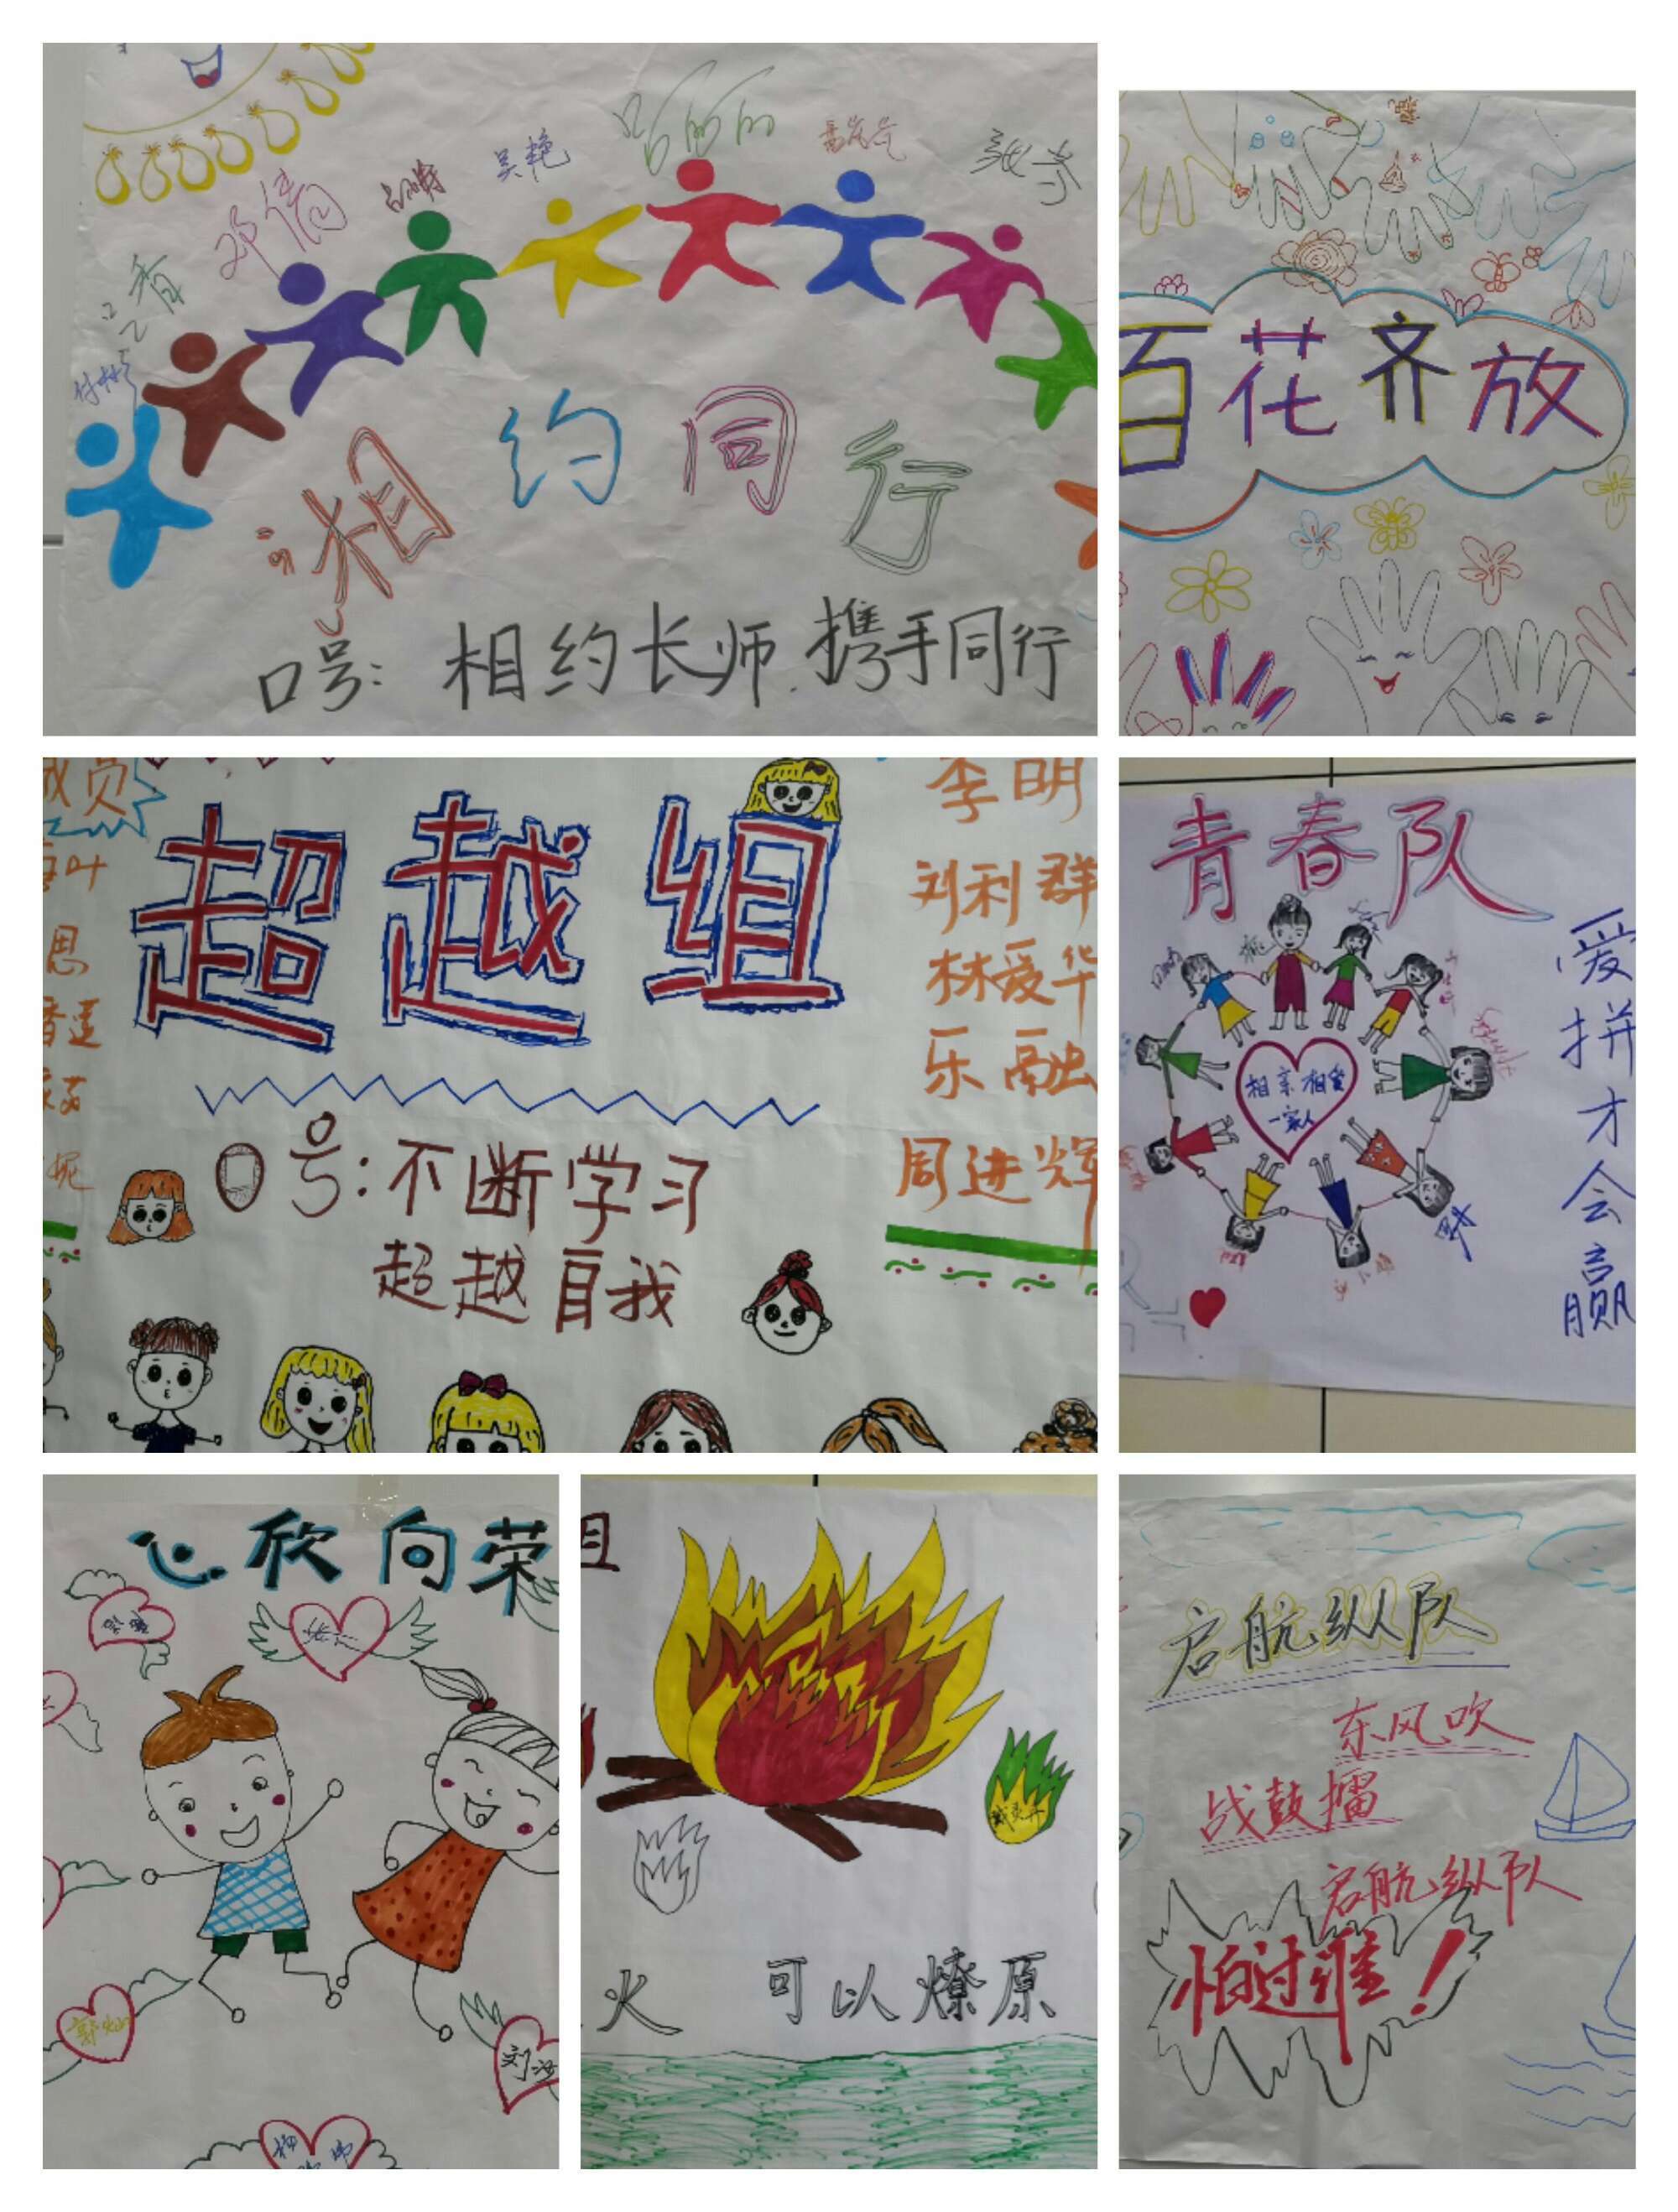 邓倩
吴艳
相约同行
口号：相约长师.携手同行
百花齐放
成员
超越组
李明
刘利群
林爱华
乐融
周进辉
思
妮
口号：不断学习
超越自我
青春队
相亲相爱
一家人
爱拼才会赢
心欣向荣
郭灿
刘
组
火 可以燎原
启航纵队
东风吹
战鼓擂
启航纵队
怕过谁！